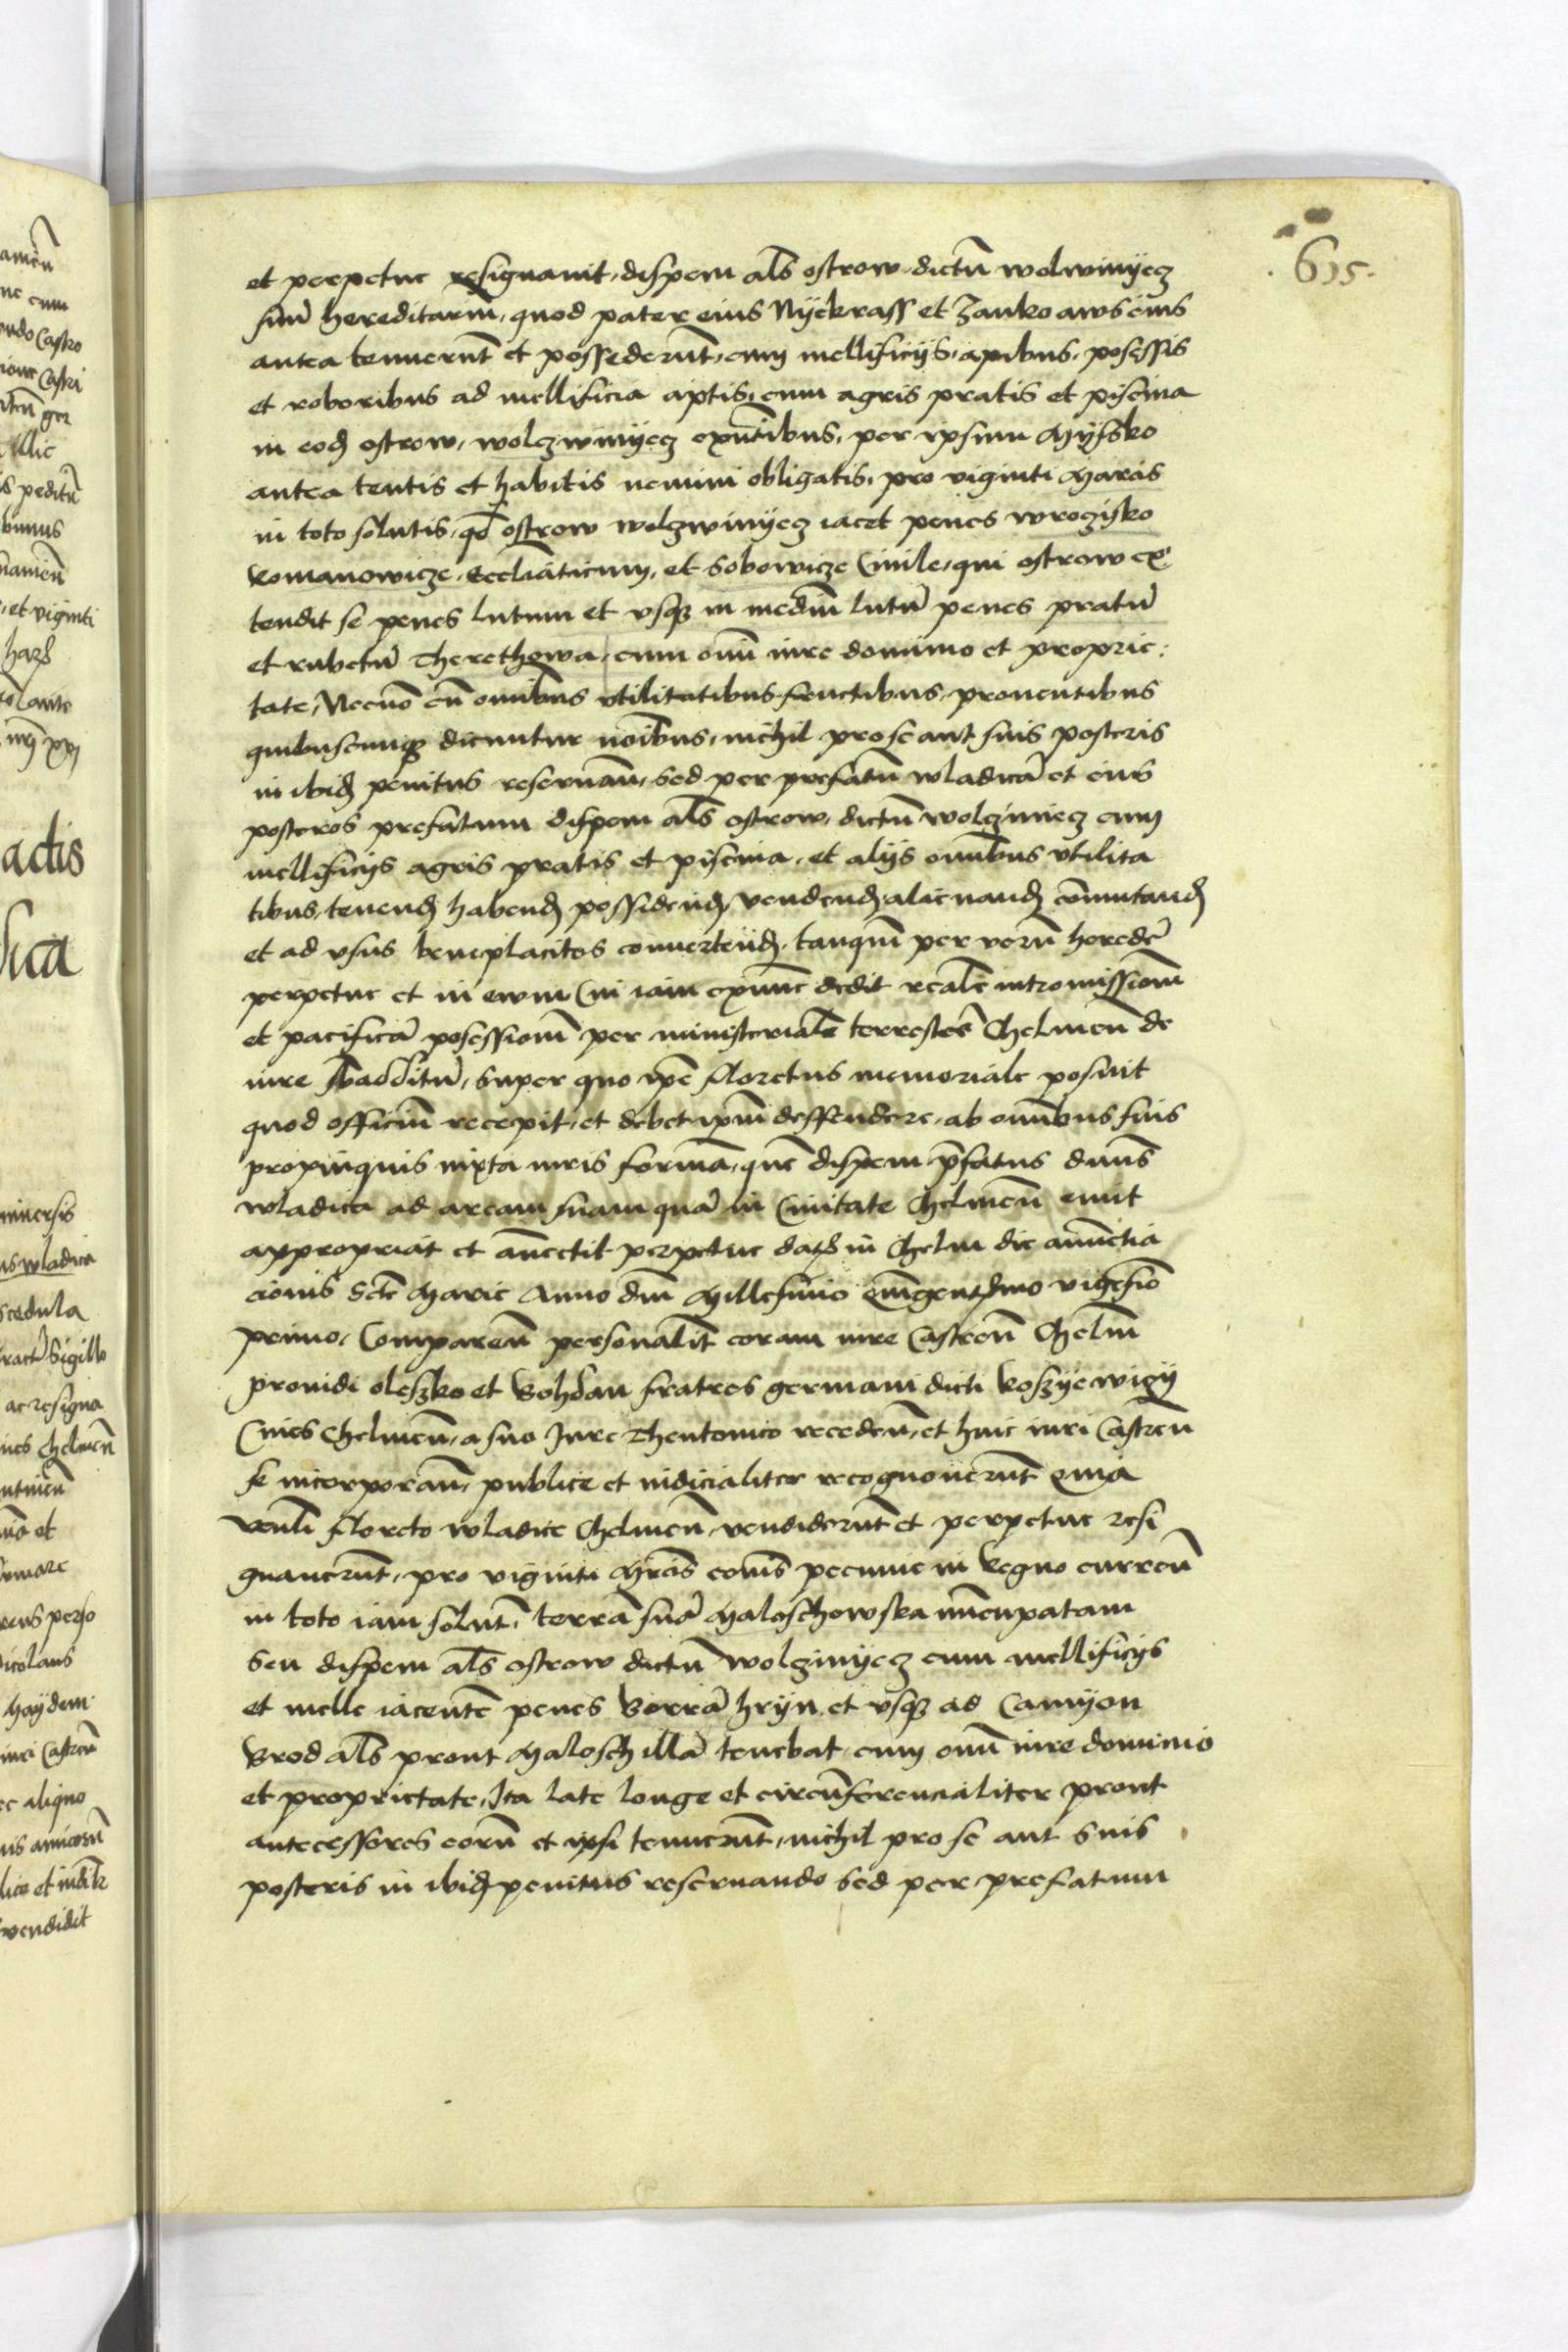 .615.
et perpetue resignauit, dispem als ostrow dictu̅ wolwinijecz
suu̅ hereditariu̅, quod pater eius Nijekrass et Zanko awus eius
antea tenueru̅t et possederu̅t, cum mellificijs, apibus, posessis
et roboribus ad mellificia aptis, cum agris pratis et piscina
in eod̅ ostrow, wolczwinijecz exn̅tibus, per ipsum Mijsko
antea tentis et habitis nemini obligatis, pro viginti Marcis
in toto solutis, qd̅ ostrow wolczwinijecz iacet penes wroczisko
Romanowicze, Eccl̅iaticum, et Sobowicze Ciuile, qui ostrow ex
tendit se penes lutum et vsq̨ in mediu̅ lutu̅ penes pratu̅
et rubetu̅ Therethowa, cum om̅i iure dominio et proprie:
tate, Necno̅ cu̅ om̅ibus vtilitatibus fructibus, prouentibus
quibuscunq̨ dicuntur no̅ibus, nichil pro se aut suis posteris
in ibid̅ penitus reseruan̅, sed per prefatu̅ wladica̅ et eius
posteros prefatum dispem als ostrow, dictu̅ wolczwiniecz cum
mellificijs agris pratis et piscina, et alijs om̅ibus vtilita
tibus, tenend̅ habend̅ possidend̅, vendend̅, alienand̅ co̅mutand̅
et ad vsus beneplacitos conuertend̅, tanqua̅ per veru̅ herede̅
perpetue et in ewum Cui iam extunc dedit reale̅ intromissione̅
et pacifica̅ posessione̅ per ministeriale̅ terrestre̅ Chelmen̅ de
iure additu̅, super quo ip̅e floretus memoriale posuit
quod officiu̅ recepit, et debet ip̅m deffendere, ab om̅ibus suis
propinquis iuxta iuris forma̅, que̅ dispem p̅fatus dn̅us
wladica ad aream suam qua̅ in Ciuitate Chelmen̅ emit
appropriat et an̅ectit perpetue dat̅ in Chelm die an̅uncia
cionis Sc̅te Marie Anno dn̅i Millesimo Quingentesimo vigesi̅o
primo, Comparen̅ personalit̅ coram iure Castren̅ Chelm̅
prouidi oleszko et Bohdan fratres germani dicti Koszijewiczij
Ciues Chelmen̅, a suo Iure Theutonico receden̅, et huic iuri Castren̅
se incorporan̅, publice et iudicialiter recognoueru̅t Quia
ven̅li floreto wladice Chelmen̅, vendideru̅t et perpetue resi
gnaueru̅t, pro viginti Mrcis co̅nis pecunie in Regno curren̅
in toto iam solut̅, terra̅ sua̅ Maloschowska nu̅cupatam
Seu dispem als ostrow dictu̅ wolczinijecz cum mellificijs
et melle iacente̅ penes Borra̅ hrijn et vsq̨ ad Camijon
Brod als prout Malosch illa̅ tenebat, cum om̅i iure dominio
et proprietate, Ita late longe et circu̅ferencialiter prout
antecessores eoru̅ et ipsi tenueru̅t, nichil pro se aut suis
posteris in ibid̅ penitus reseruando Sed per prefatum